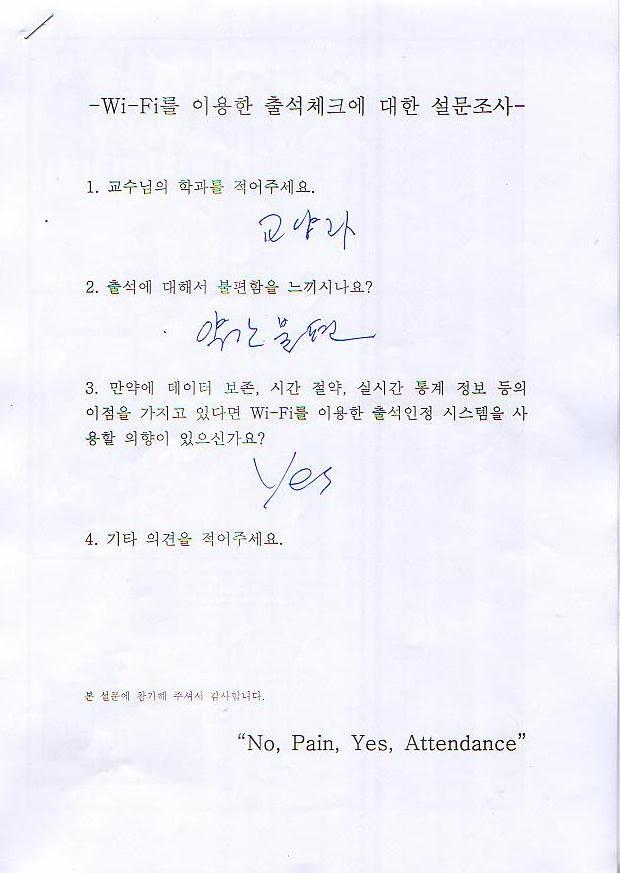 -Wi-Fi를 이용한 출석체크에 대한 설문조사-
1. 교수님의 학과를 적어주세요.
교양과
2. 출석에 대해서 불편함을 느끼시나요?
약간 불편
3. 만약에 데이터 보존, 시간 절약, 실시간 통계 정보 등의
이점을 가지고 있다면 Wi-Fi를 이용한 출석인정 시스템을 사
용할 의향이 있으신가요?
Yes
4. 기타 의견을 적어주세요.
본 설문에 참가해 주셔서 감사합니다.
“No, Pain, Yes, Attendance”